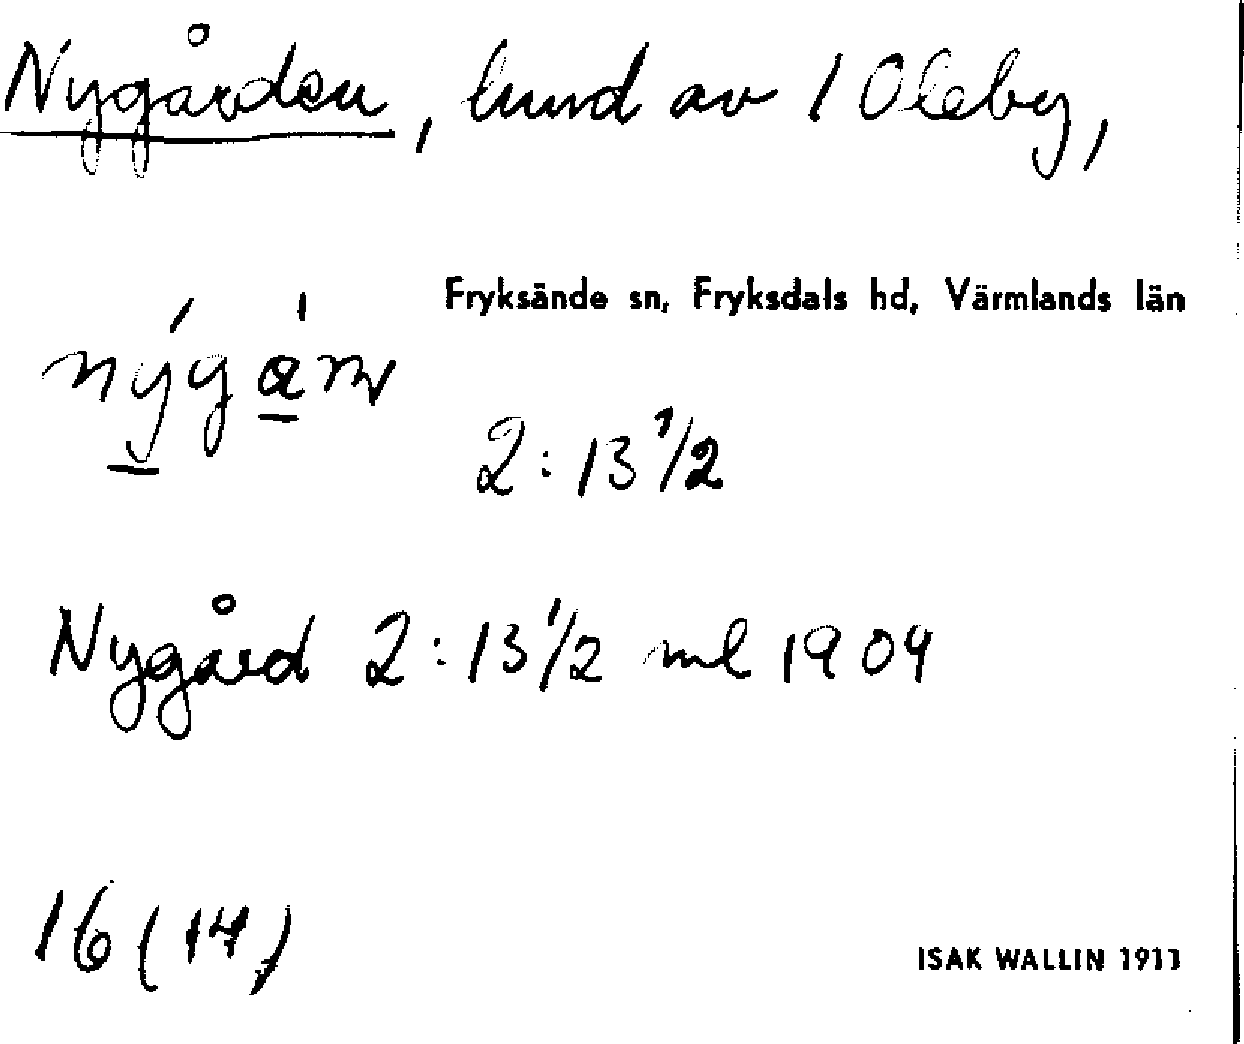 Nygården, lund av 1 Oleby,
Fryksände sn, Fryksdals hd, Värmlands län
2:13 1/2
Nygård 2:13 1/2 ml 1909
16 (14)
ISAK WALLIN 1911